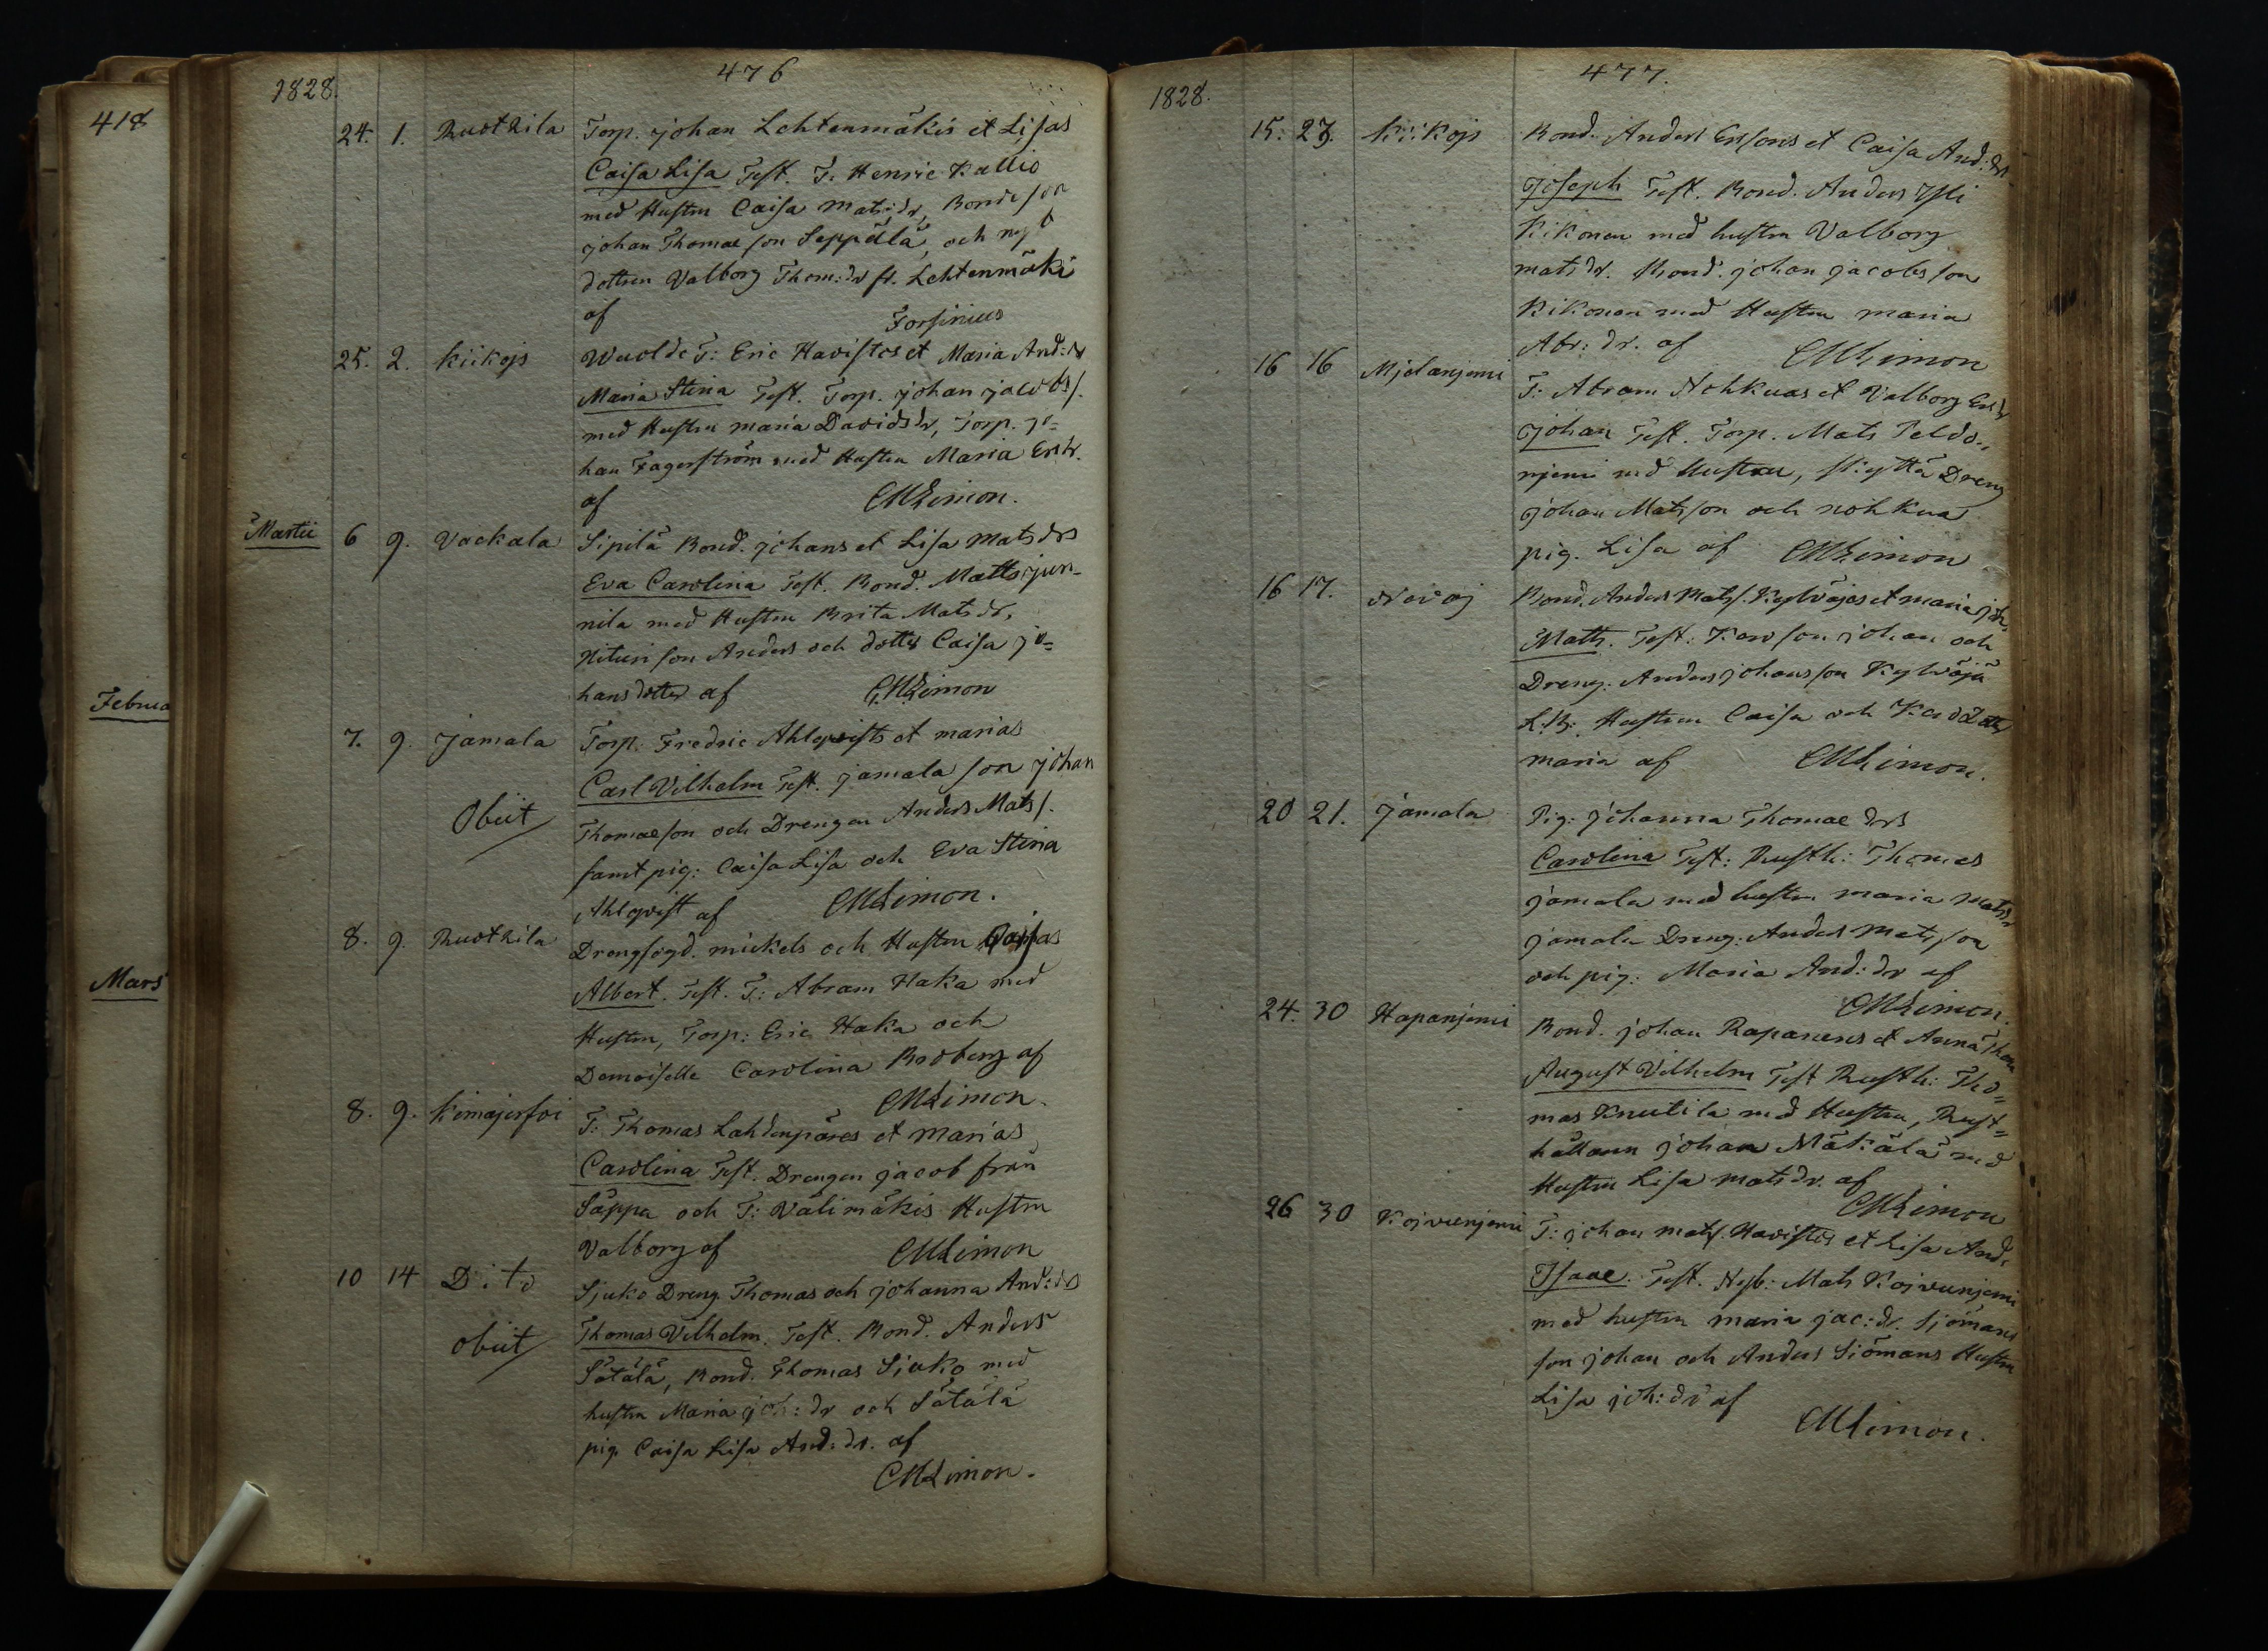 418
Februa
Mars
1828.
476
24. 1. Ruotsila Torp. Johan Lehtenmäkis et Lisas
Caisa Lisa Test. T: Henric Kallio
med Hustru Caisa Mats:dr, Bondeson
Johan Thomae son Seppälä, och
dottren Valborg Thom:dr fr. Lehtenmäki
af Forsinius
25. 2. Kiikojs Wuolde T: Eric Havistos et Maria And:dr
Maria Stina Test. Torp. Johan Jacobs/.
med Hustru Maria Davidsdr, Torp. Jo=
han Fagerström med Hustru Maria Er:dr.
af CMLimon.
Martii 6 9. Vackala Sipilä Bond. Johans et Lisa Matsdrs
Eva Carolina Test. Bond. Matts Jun-
nila med Hustru Brita Matsdr,
son Anders och dotter Caisa Jo=
hansdotter af CMLimon
7. 9. Jamala Torp. Fredric Ahlqvists et Marias
Carl Vilhelm Test. Jamala son Johan
Obiit Thomaeson och Drengen Anders Mats/.
samt pig: Caisa Lisa och Eva Stina
Ahlqvist af CMLimon.
8. 9. Ruotsila Drengfogd. Mickels och Hustru Caisas
Albert. Test. T: Abram Haka med
Hustru, Torp: Eric Haka och
Demoiselle Carolina Broberg af
CMLimon.
8. 9. Kimajersoi T: Thomas Lahdenpäres et Marias
Carolina Test. Drengen Jacob från
Säppä och T: Välimäkis Hustru
Valborg af CMLimon
10 14 Dito Sjuko Dreng Thomas och Johanna And:drs
obiit Thomas Vilhelm. Test. Bond. Anders
Sätälä, Bond. Thomas Sjuko med
hustru Maria Joh:dr och Sätälä
pig. Caisa Lisa And:dr. af
CMLimon.
1828.
477.
15. 23. Kiikojs Bond. Anders Ersons et Caisa And:drs
Joseph Test. Bond. Anders Yli
Kikonen med hustru Valborg
matsdr. Bond. Johan Jacobsson
Kikonen med Hustru Maria
Abr:dr. af CMLimon
16 16 Mjolanjemi T: Abram Nohkuas et Valborg Ersdr
Johan Test. Torp. Mats Peldo-
njemi med Hustru, Skyttä Dreng
Johan Matsson och Nohkua
pig. Lisa af CMLimon
16 17. Bond. Anders Mats/. Kylväjäs et Maria Joh.
Matts. Test: son Johan och
Dreng. Anders Johansson Kylväjä
Hustrun Caisa och dotter
Maria af CMLimon.
20 21. Jamala Pig: Johanna Thomae drs
Carolina Test: Rusth: Thomas
Jamala med hustru Maria Matsdr
Jamala Dreng: Anders Matsson
och pig: Maria And:dr af
CMLimon.
24. 30 Hapanjemi Bond. Johan Rapanens et Anna Thom
August Vilhelm Test Rusth: Tho=
mas Knutila med Hustru, Rust=
hållaren Johan Mäkälä med
Hustru Lisa Matsdr. af
CMLimon
26 30 Kojvunjemi T: Johan Mats/. Havistos et Lisa And.
Isaac. Test. Nyb: Mats Kojvunjemi
med hustru Maria Jac:dr. Sjömans
son Johan och Anders Siömans Hustru
Lisa Joh:dr af
CMLimon.